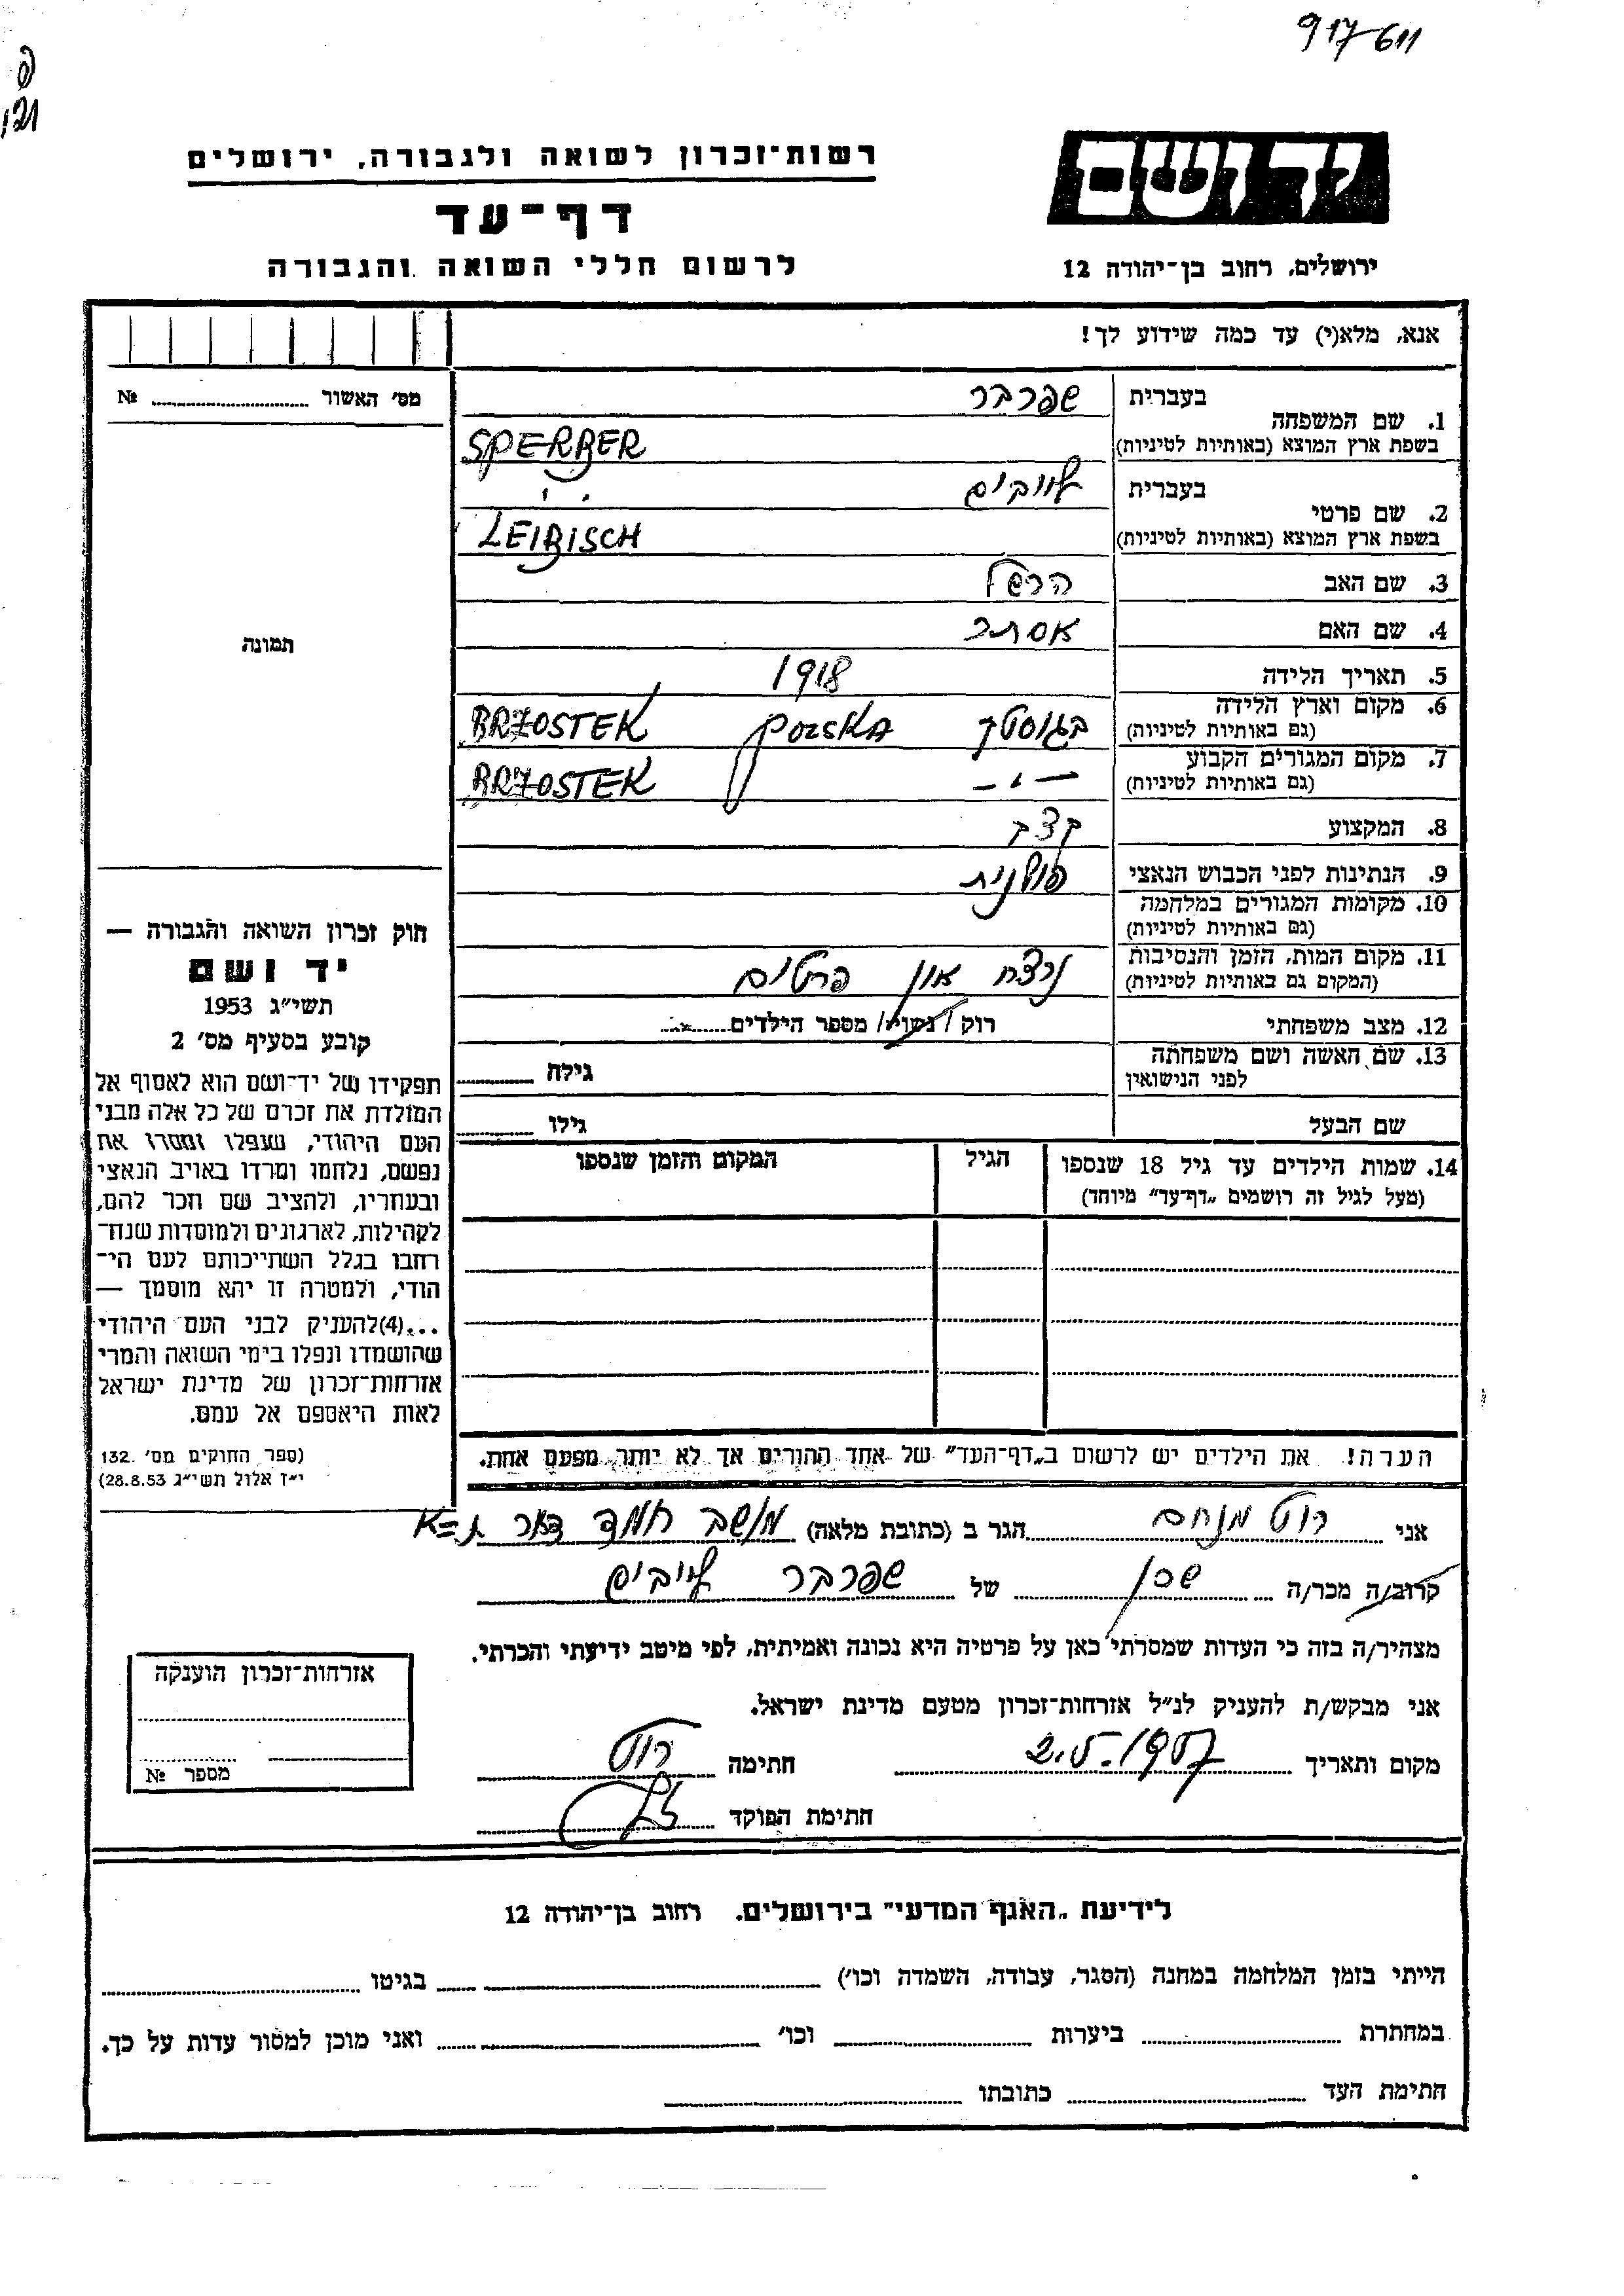 917611
121
רשות־זכרון לשואה ולגבורה, ירושלים
יד ושם
דף־עד
לרשום חללי השואה והגבורה
ירושלים, רחוב בן־יהודה 12
אנא, מלא(י) עד כמה שידוע לך!
מס׳ האשור № 
1. שם המשפחה
בעברית שפרבר
בשפת ארץ המוצא (באותיות לטיניות) SPERBER
2. שם פרטי
בעברית לייביש
בשפת ארץ המוצא (באותיות לטיניות) LEIBISCH
3. שם האב הרשל
4. שם האם אסתר
תמונה
5. תאריך הלידה 1918
6. מקום וארץ הלידה
(גם באותיות לטיניות) POLSKA BRZOSTEK
7. מקום המגורים הקבוע
(גם באותיות לטיניות) -"- BRZOSTEK
8. המקצוע קצב
9. הנתינות לפני הכבוש הנאצי פולנית
10. מקומות המגורים במלחמה
(גם באותיות לטיניות)
11. מקום המות, הזמן והנסיבות
(המקום גם באותיות לטיניות) נרצח אין פרטים
12. מצב משפחתי רוק / נשוי / מספר הילדים
13. שם האשה ושם משפחתה
לפני הנישואין גילה
שם הבעל גילו
14. שמות הילדים עד גיל 18 שנספו
(מעל לגיל זה רושמים „דף־עד״ מיוחד)
הגיל
המקום והזמן שנספו
חוק זכרון השואה והגבורה —
יד ושם
תשי״ג 1953
קובע בסעיף מס׳ 2
תפקידו של יד־ושם הוא לאסוף אל
המולדת את זכרם של כל אלה מבני
העם היהודי, שנפלו ומסרו את
נפשם, נלחמו ומרדו באויב הנאצי
ובעוזריו, ולהציב שם וזכר להם,
לקהילות, לארגונים ולמוסדות שנח־
רבו בגלל השתייכותם לעם הי־
הודי, ולמטרה זו יהא מוסמך —
...(4) להעניק לבני העם היהודי
שהושמדו ונפלו בימי השואה והמרי
אזרחות־זכרון של מדינת ישראל
לאות היאספם אל עמם.
(ספר החוקים מס׳ 132.
י״ז אלול תשי״ג 28.8.53)
הערה! את הילדים יש לרשום ב„דף־העד״ של אחד ההורים אך לא יותר מפעם אחת.
אני רוט מנחם הגר ב (כתובת מלאה) מושב חמד דאר ת־א
קרוב/ה מכר/ה שכן של שפרבר לייביש
מצהיר/ה בזה כי העדות שמסרתי כאן על פרטיה היא נכונה ואמיתית, לפי מיטב ידיעתי והכרתי.
אני מבקש/ת להעניק לנ״ל אזרחות־זכרון מטעם מדינת ישראל.
מקום ותאריך 2.5.1957 חתימה רוט
חתימת הפוקד
אזרחות־זכרון הוענקה
מספר №
לידיעת „האגף המדעי״ בירושלים, רחוב בן־יהודה 12
הייתי בזמן המלחמה במחנה (הסגר, עבודה, השמדה וכו׳) בגיטו
במחתרת ביערות וכו׳ ואני מוכן למסור עדות על כך.
חתימת העד כתובתו